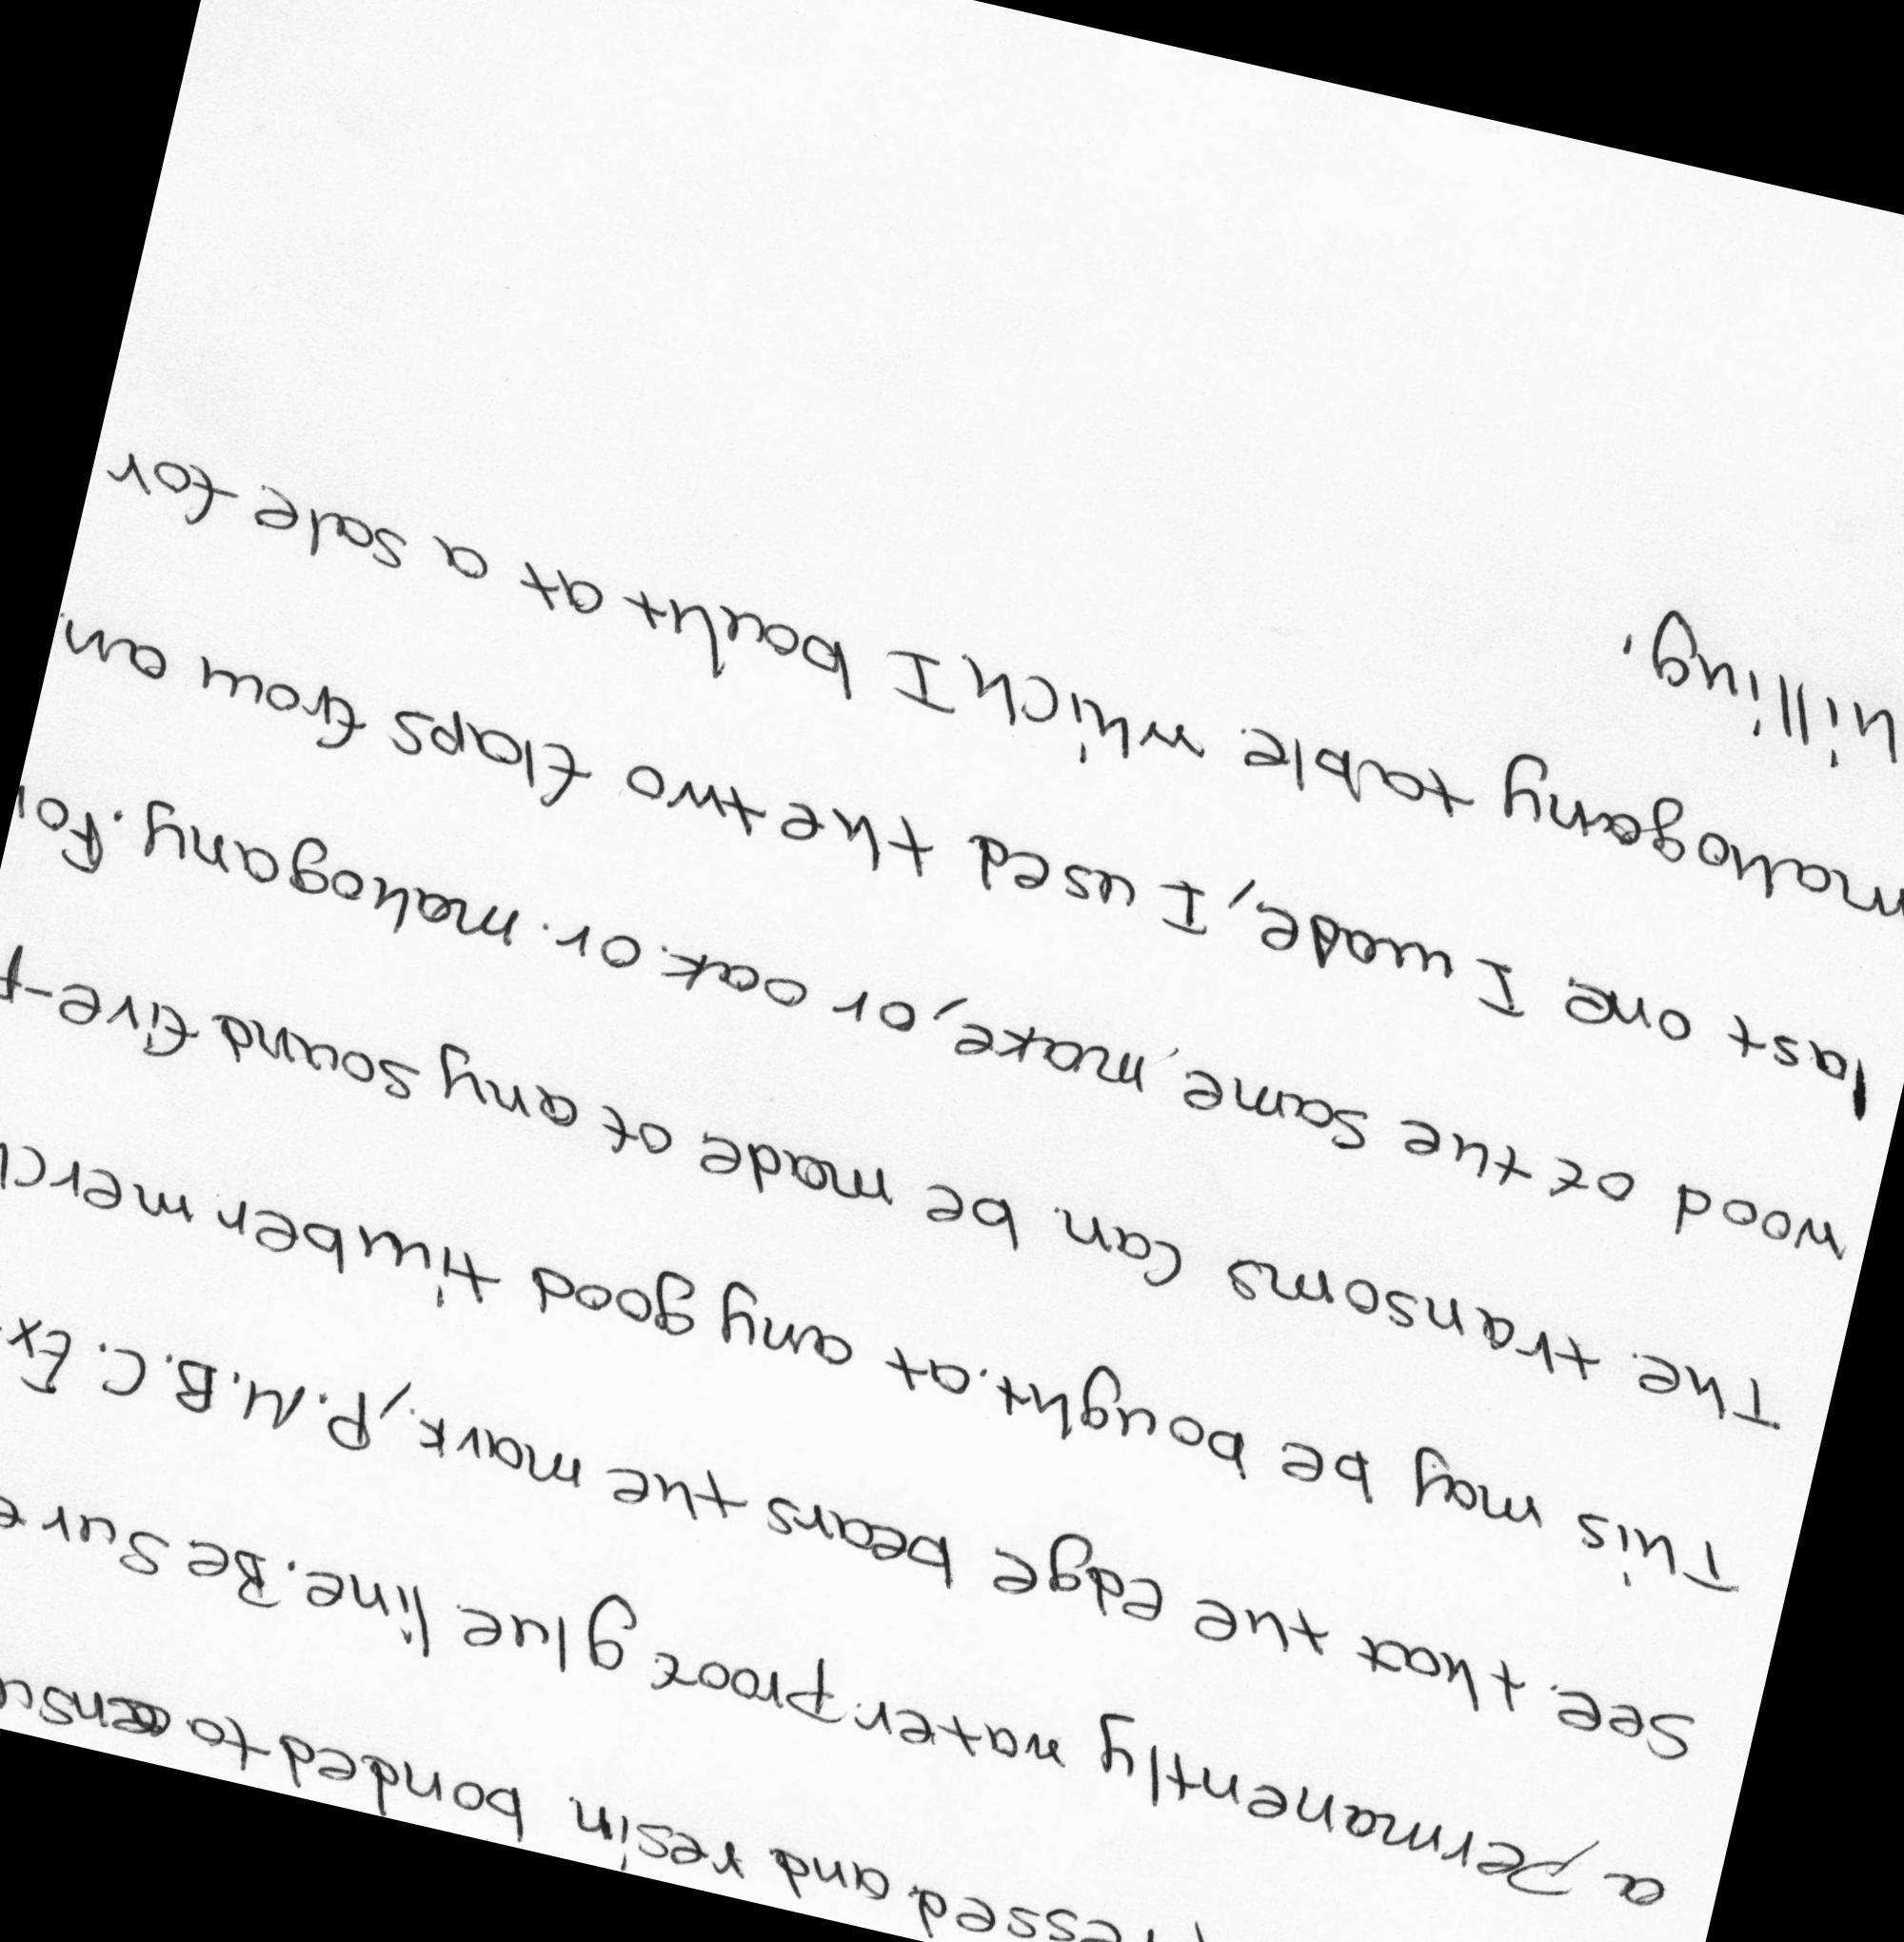 pressed and resin bonded to ensu
a permanently water proof glue line. Be Sure
See that the edge bears the mark, P.N.B.C. Ex
This may be bought at any good timber merch
The transoms can be made of any sound five-p
wood of the same make, or oak or mahogany. For
last one I made, I used the two flaps from an
mahogany table which I bouht at a sale for
hilling.